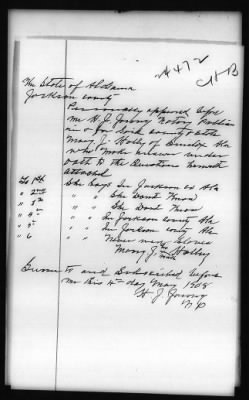 The State of Alabama
Jackson county
Personally appeared before
me H. J. Young Notary Public
in & for said county & state
Mary J. Holly of
who makes answer under
oath to the Questions hereunto
attached
To 1st She Says In Jackson co Ala
" 2nd " She Dont Know
" 3rd " She Dont Know
" 4th " In Jackson county Ala
" 5th " In Jackson county Ala
" 6 " Never were slaves
Mary J. Holly
mark
Sworn to and Subscribed before
me this 4th day May 1908
H. J. Young
N P